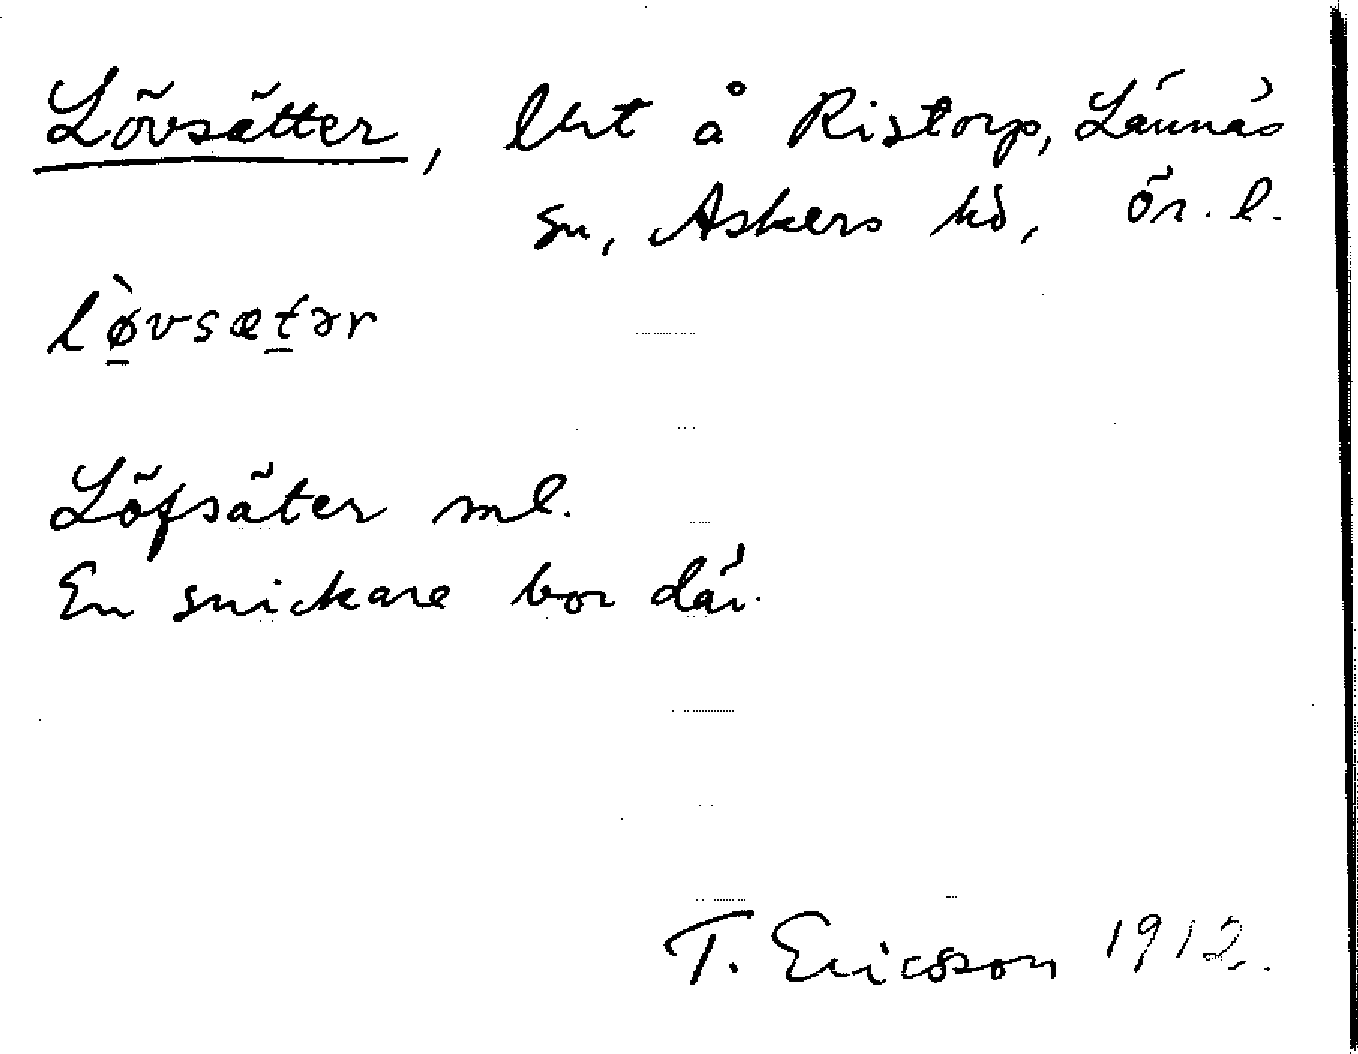 Lövsätter, lht å Ristorp, Lännäs
sn, Askers hd, Ör. l.
lø̀vsætər
Löfsäter ml.
En snickare bor där.
T. Ericsson 1912.